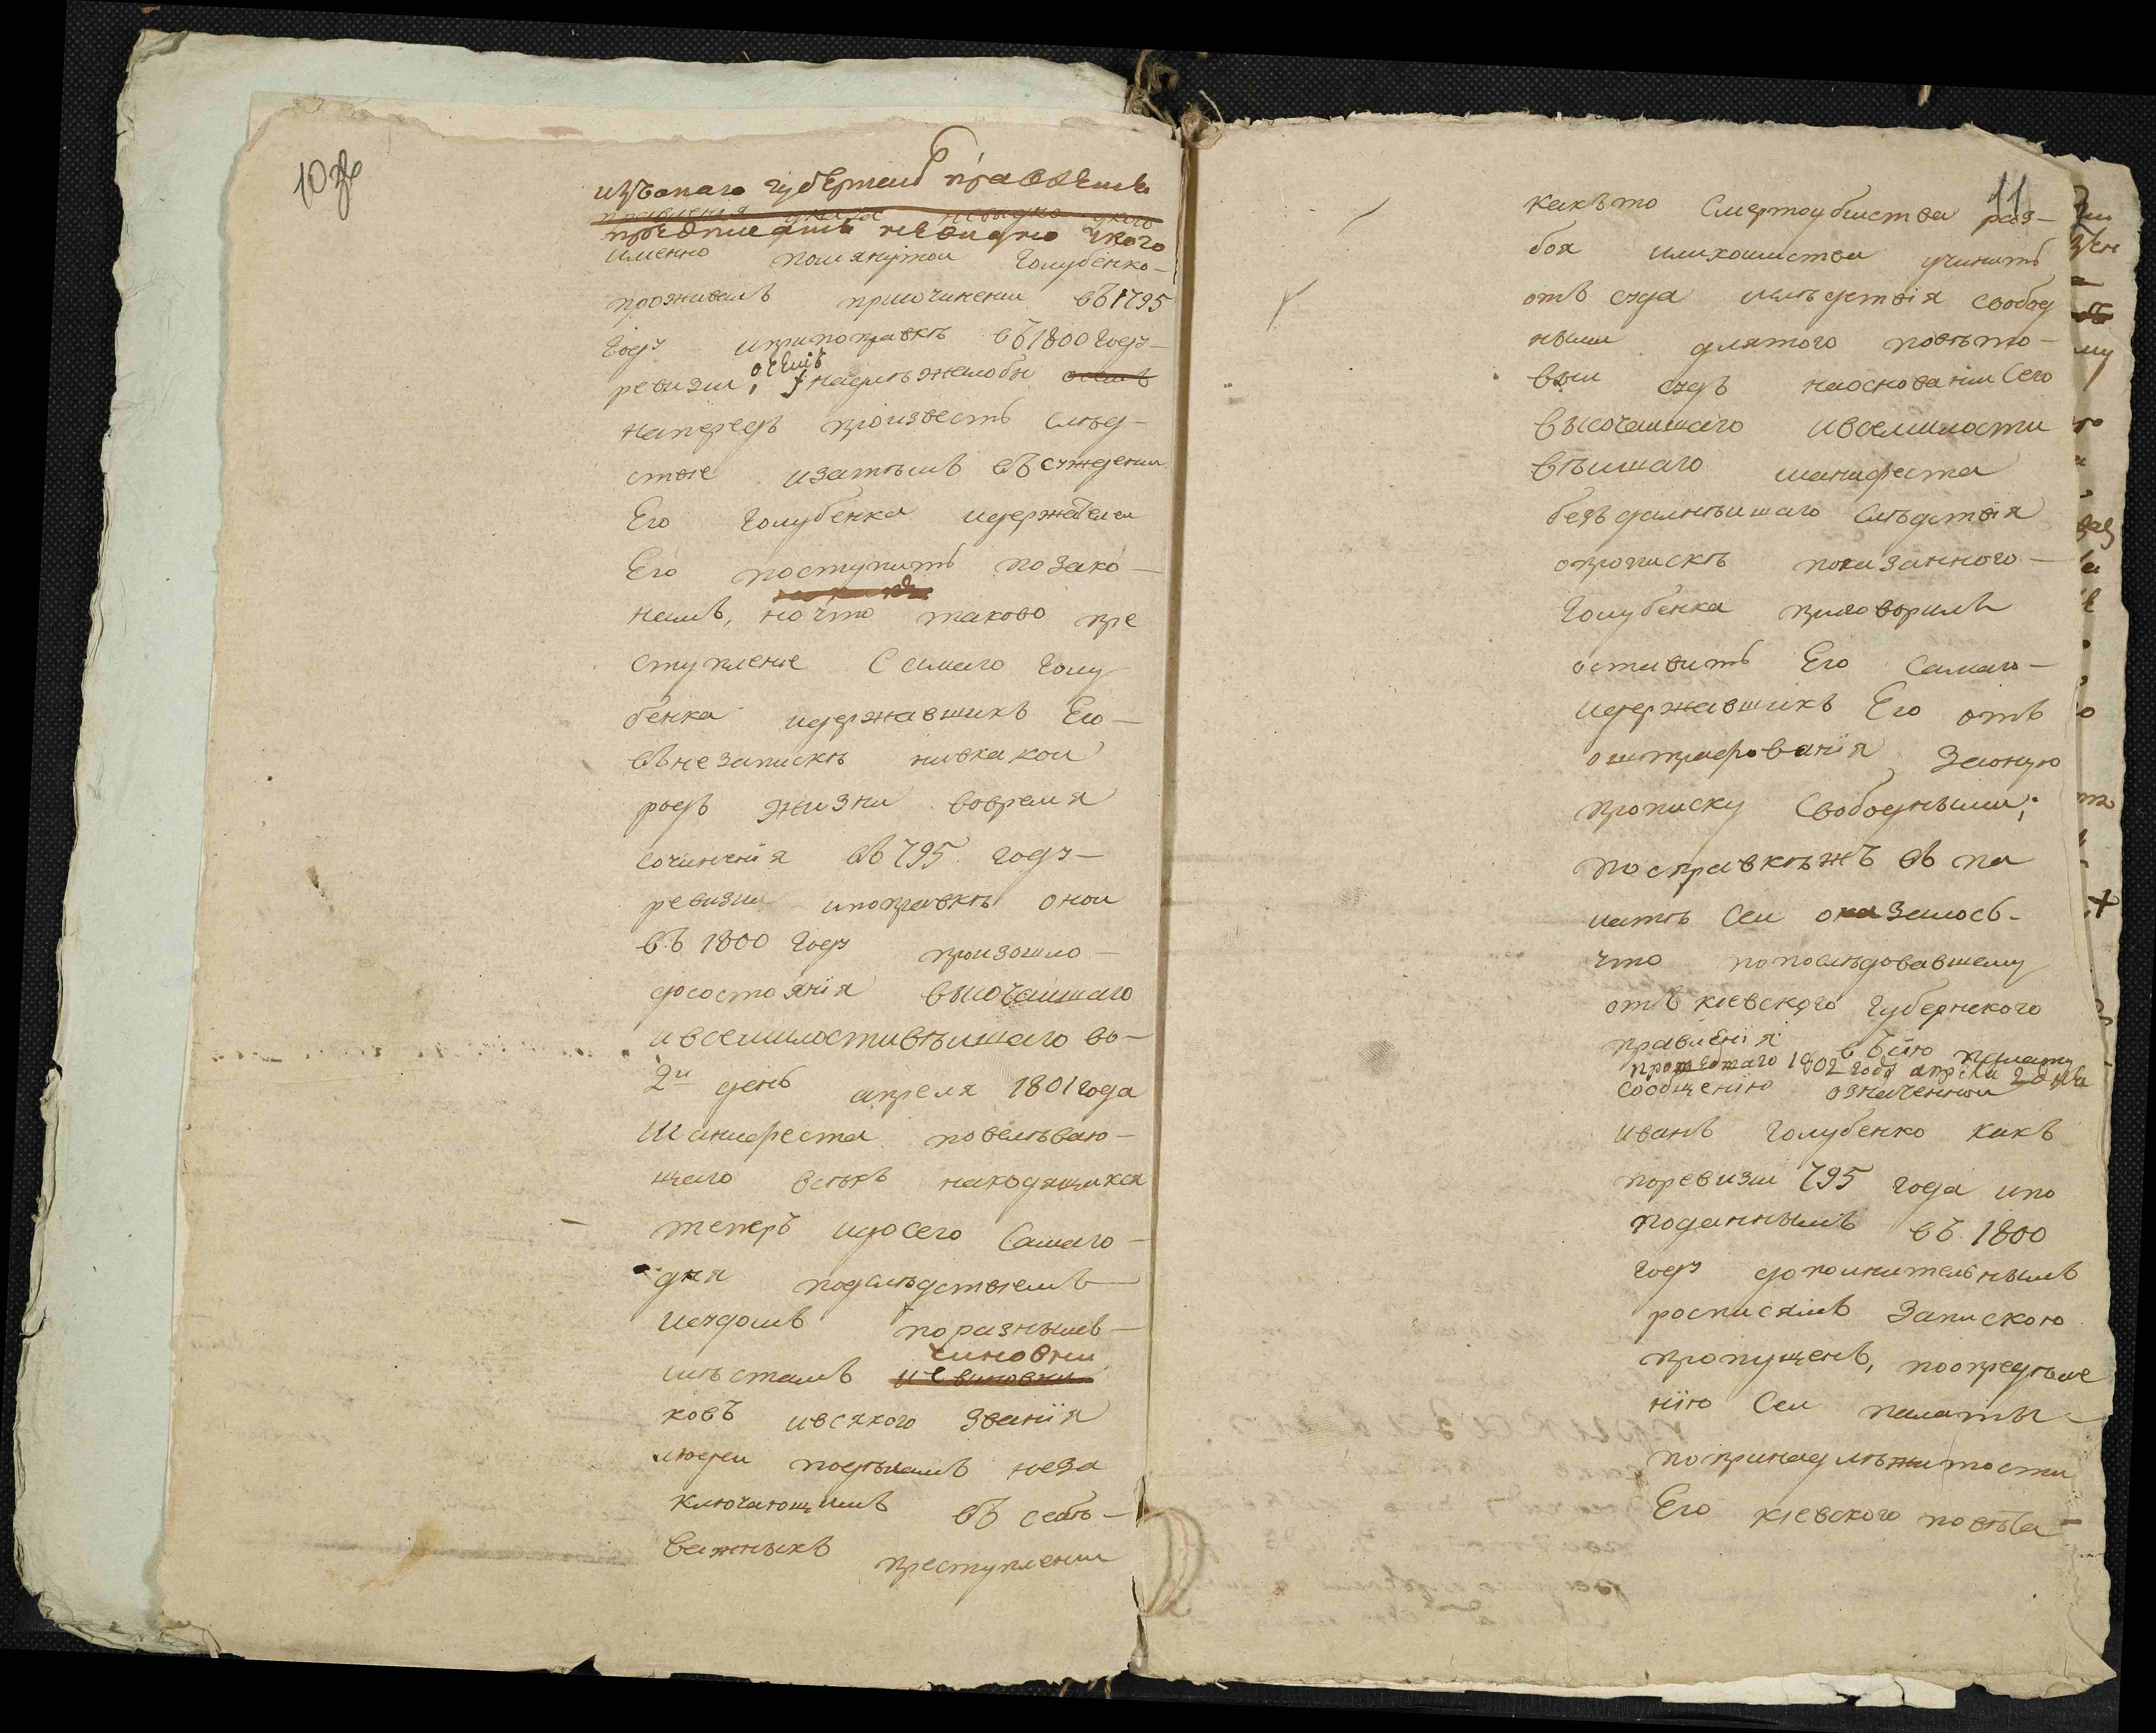 10 зв
изъ онаго губернск правления
предписания невидно укого
именно помянутой Голубенко
проживалъ присочинении въ 1795
году ипри поправкѣ въ 1800 году
ревизии, осемъ надлѣжалобы
напередъ произвесть слѣд-
ствіе изатѣмъ въ сужденіи
Его Голубенка идержателей
Его поступить позако-
намъ, но что таково пре
ступленіе Самаго Голу
бенка идержавшихъ Его
въ незапискѣ нивкакой
родъ жизни вовремя
сочиненія въ 795 году
ревизии ипоправкѣ оной
въ 1800 году произошло
досостоянія высочайшаго
ивсемилостивѣйшаго во
2й день апреля 1801 года
Манифеста повелѣваю-
щаго всѣхъ находящихся
теперь идосего Самаго
дня подслѣдствіемъ
исудомъ поразнымъ
мѣстамъ чиновни
ковъ ивсякого званія
людей подѣламъ неза
ключающимъ въ себѣ
важныхъ преступлении
11
какъто Смертоубиства раз-
боя илихоимства учинить
отъ суда ислѣдствія свобод
ными длятого повѣто-
вый судъ наоснованіи Сего
высочаишаго ивсемилости
вѣишаго манифеста
безъ далнѣишаго Слѣдствія
опропискѣ показанного
Голубенка приговорилъ
оставить Его Самаго
идержавшихъ Его отъ
оштрафованія Заоную
прописку Свободными;
посправкѣжъ въ па
латѣ Сей оказалось
что попослѣдовавшему
отъ кіевского Губернского
правленія въ сію палату
прошедшаго 1802 года апреля 20 дня
сообщенію означенной
иванъ Голубенко какъ
поревизии 795 года ипо
поданнымъ въ 1800
году дополнительнымъ
росписямъ Запискою
пропущенъ, поопредѣле
нію Сей палаты
попринадлѣжности
Его кіевского повѣта